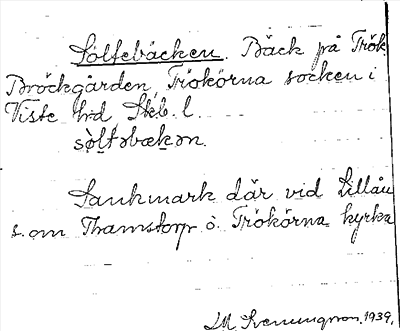 Sölfebäcken. Bäck på Trök.
Bröckgården, Trökörna socken i
Viste hrd Skb. l.
sò̤lfəbækən.
Sankmark där vid Lillån
s. om Thamstorp ö. Trökörna kyrka
1939.